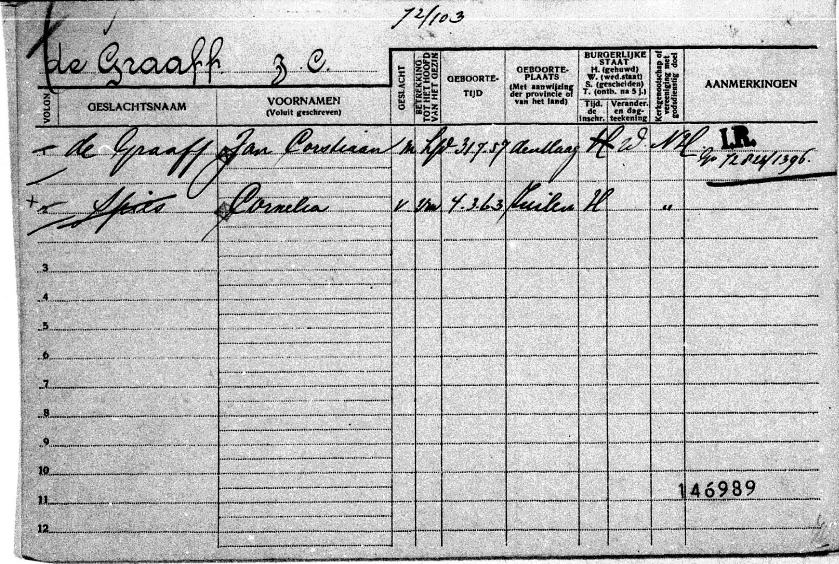 72/103
de Graaff J. C.
VOLGN. GESLACHTSNAAM VOORNAMEN (Voluit geschreven) GESLACHT BETREKKING TOT HET HOOFD VAN HET GEZIN GEBOORTE-TIJD GEBOORTE-PLAATS (Met aanwijzing der provincie of van het land) BURGERLIJKE STAAT H. (gehuwd) W. (wed.staat) S. (gescheiden) T. (ontb. na 5 j.) Tijd. de inschr. Verander. en dag-teekening Kerkgenootschap of vereeniging met godsdienstig doel AANMERKINGEN
de Graaff Jan Corstiaan m hfd 31.7.57 den Haag H W. NH I.R.
Spies Cornelia v vrw 4.3.63 H "
3
4
5
6
7
8
9
10
146989
11
12